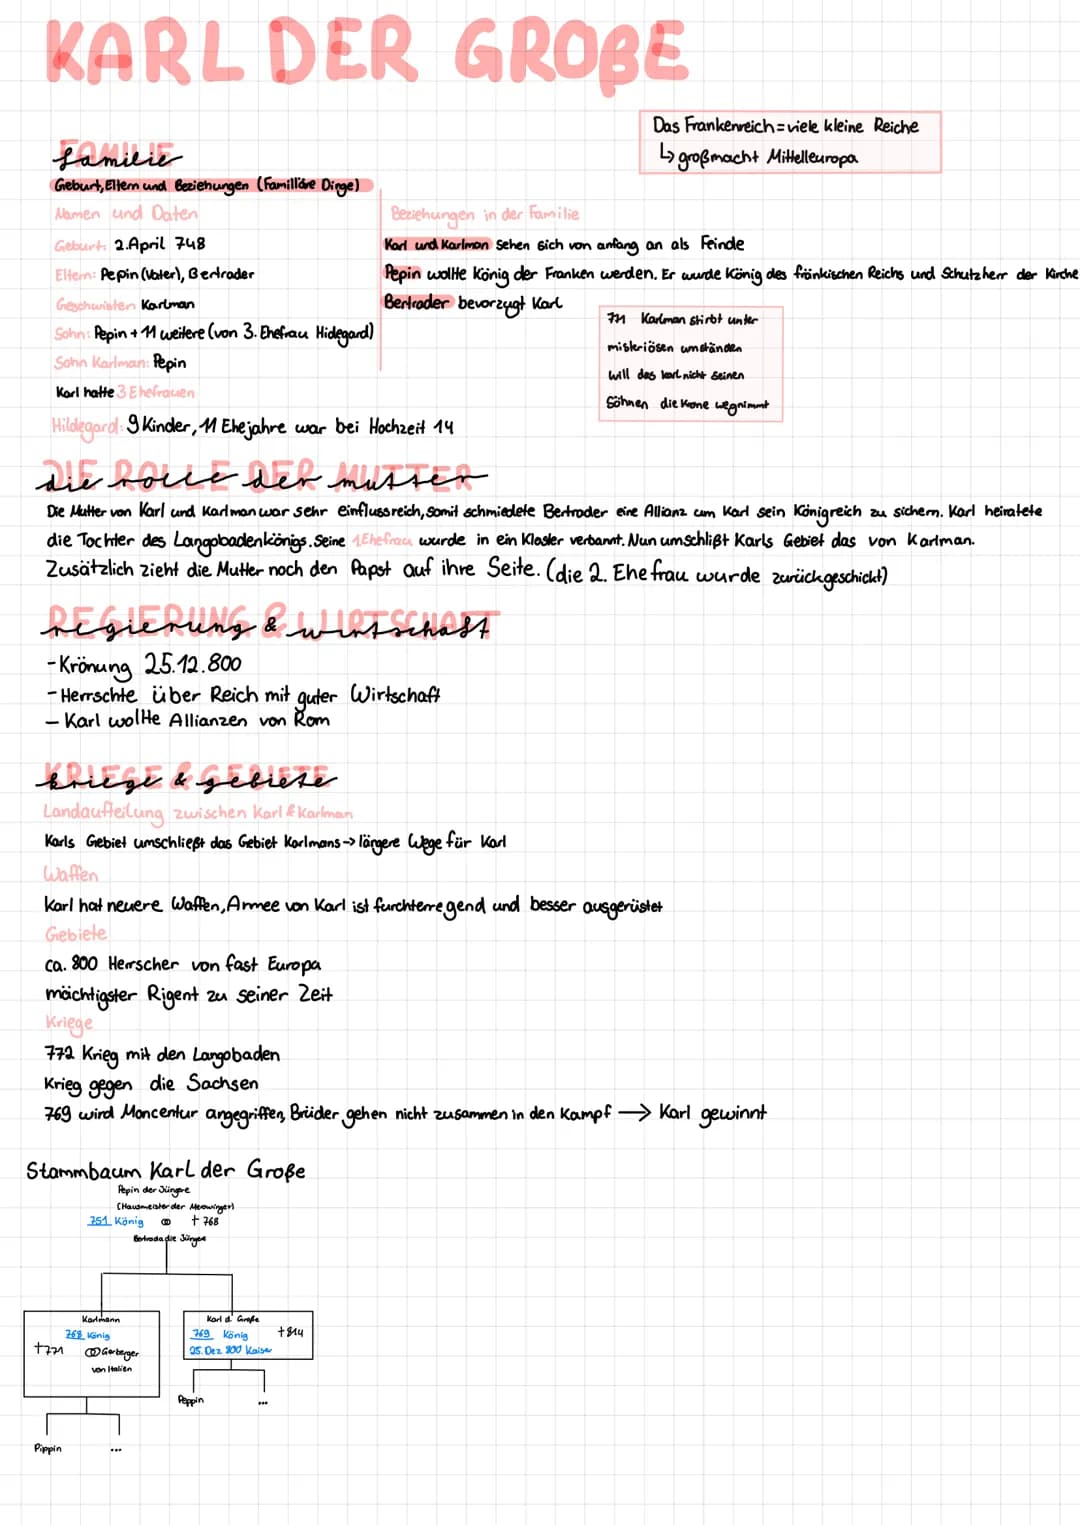 KARL DER GROßE
Das Frankenreich = viele kleine Reiche
↳ großmacht Mittelleuropa
FAMILIE
familie
Geburt, Eltern und Beziehungen (Familläre Dinge)
Namen und Daten
Geburt: 2. April 748
Eltern: Pepin (Vater), Bertrader
Geschwister: Karlman
Sohn: Pepin + 11 weitere (von 3. Ehefrau Hidegard)
Sohn Karlman: Pepin
Karl hatte 3 Ehefrauen
Hildegard: 9 Kinder, 11 Ehejahre war bei Hochzeit 14
Beziehungen in der Familie
Karl und Karlman sehen sich von anfang an als Feinde
Pepin wollte König der Franken werden. Er wurde König des fränkischen Reichs und Schutzherr der Kirche
Bertrader bevorzugt Karl
771 Karlman stirbt unter
misteriösen umständen
will das karl nicht seinen
Söhnen die Krone wegnimmt
DIE ROLLE DER MUTTER
die rolle der mutter
Die Mutter von Karl und Karlman war sehr einflussreich, somit schmiedete Bertroder eine Allianz um Karl sein Königreich zu sichern. Karl heiratete
die Tochter des Langobadenkönigs. Seine 1 Ehefrau wurde in ein Kloster verbannt. Nun umschlißt Karls Gebiet das von Karlman.
Zusätzlich zieht die Mutter noch den Papst auf ihre Seite. (die 2. Ehefrau wurde zurückgeschickt)
REGIERUNG & WIRTSCHAFT
regierung & wirtschaft
- Krönung 25.12.800
- Herrschte über Reich mit guter Wirtschaft
- Karl wollte Allianzen von Rom
KRIEGE & GEBIETE
kriege & gebiete
Landaufteilung zwischen Karl & Karlman
Karls Gebiet umschließt das Gebiet Karlmans → längere Wege für Karl
Waffen
Karl hat neuere Waffen, Armee von Karl ist furchterregend und besser ausgerüstet
Gebiete
ca. 800 Herrscher von fast Europa
mächtigster Rigent zu seiner Zeit
Kriege
772 Krieg mit den Langobaden
Krieg gegen die Sachsen
769 wird Moncentur angegriffen, Brüder gehen nicht zusammen in den Kampf → Karl gewinnt
Stammbaum Karl der Große
Pepin der Jüngere
(Hausmeister der Merowinger)
751 König ⚭ † 768
Bertrada die Jüngere
Karlmann
768 König
†771 ⚭ Gerberger
von Italien
Karl d. Große
769 König †814
25. Dez 800 Kaiser
Peppin ...
Pippin ...